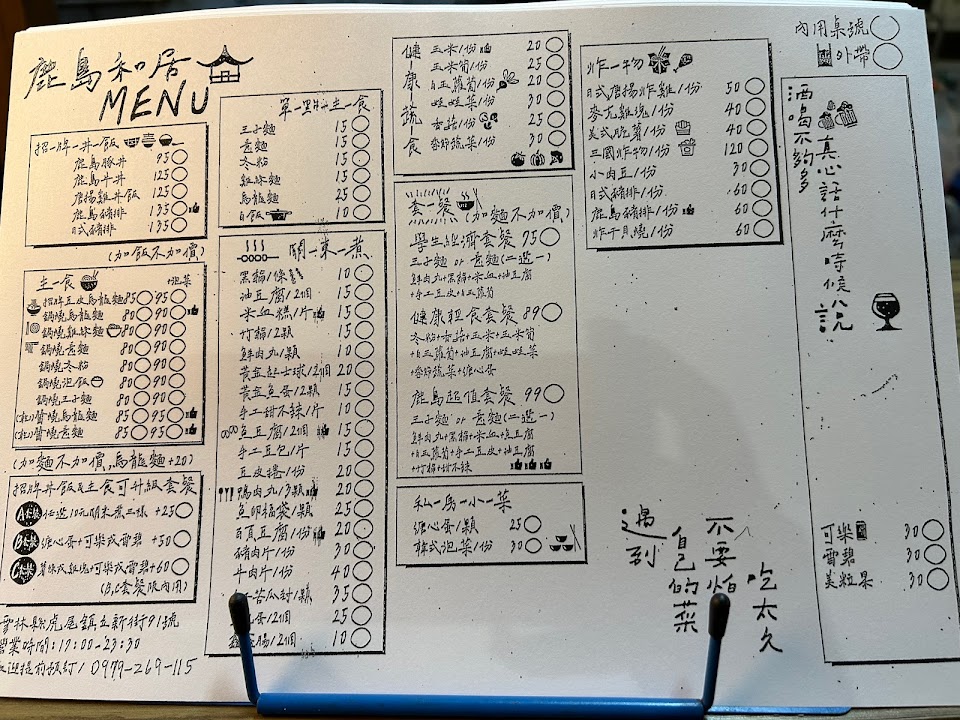 鹿島和居
MENU
招牌丼飯
鹿島豚丼 95
鹿島牛丼 125
唐揚雞丼飯 125
鹿島豬排 135
日式豬排 135
(加飯不加價)
主一食 +泡菜
招牌豆皮烏龍麵 85 95
鍋燒烏龍麵 80 90
鍋燒雞絲麵 80 90
鍋燒意麵 80 90
鍋燒冬粉 80 90
鍋燒泡飯 80 90
鍋燒王子麵 80 90
(社)醬燒烏龍麵 85 95
(社)醬燒意麵 85 95
(加麵不加價,烏龍麵+20)
招牌丼飯&主食可升級套餐
A套餐 任選10元關東煮三樣 +25
B套餐 溏心蛋+可樂或雪碧 +50
C套餐 薯條或雞塊+可樂或雪碧+60
(B,C套餐限內用)
雲林縣虎尾鎮立新街91號
營業時間:17:00-23:30
歡迎提前預訂/0979-269-115
單一點主一食
王子麵 15
意麵 15
冬粉 15
雞絲麵 15
烏龍麵 25
白飯 10
關一東一煮
黑輪/條 10
油豆腐/2個 15
米血糕/1片 15
竹輪/2顆 15
鮮肉丸/1顆 10
黃金起士球/2個 20
黃金魚蛋/2顆 15
手工甜不辣/1片 10
魚豆腐/2個 15
手工豆包/1片 15
豆皮捲/1份 20
鴨肉丸/3顆 20
魚卵福袋/1顆 25
百頁豆腐/1份 20
豬肉片/1份 30
牛肉片/1份 40
苦瓜封/1顆 35
蛋/2個 25
腸/2個 10
健一康一蔬一食
玉米/1份 20
玉米筍/1份 25
白玉蘿蔔/1份 20
娃娃菜/1份 30
香菇/1份 25
季節蔬菜/1份 30
套一餐 (加麵不加價)
學生經濟套餐 75
王子麵 or 意麵(二選一)
鮮肉丸+黑輪+米血+油豆腐
+手工豆皮+白玉蘿蔔
健康輕食套餐 89
冬粉+香菇+玉米+玉米筍
+白玉蘿蔔+油豆腐+娃娃菜
+季節蔬菜+溏心蛋
鹿島超值套餐 99
王子麵 or 意麵(二選一)
鮮肉丸+黑輪+米血+魚豆腐
+白玉蘿蔔+手工豆皮+油豆腐
+竹輪+甜不辣
私一房一小一菜
溏心蛋/1顆 25
韓式泡菜/1份 30
炸一物
日式唐揚炸雞/1份 50
麥克雞塊/1份 40
美式脆薯/1份 40
三國炸物/1份 120
小肉豆/1份 30
日式豬排/1份 60
鹿島豬排/1份 60
炸干貝燒/1份 60
內用桌號
外帶
酒喝不夠多
真心話什麼時候說
可樂 30
雪碧 30
美粒果 30
遇到
自己的菜
不要怕
吃太久